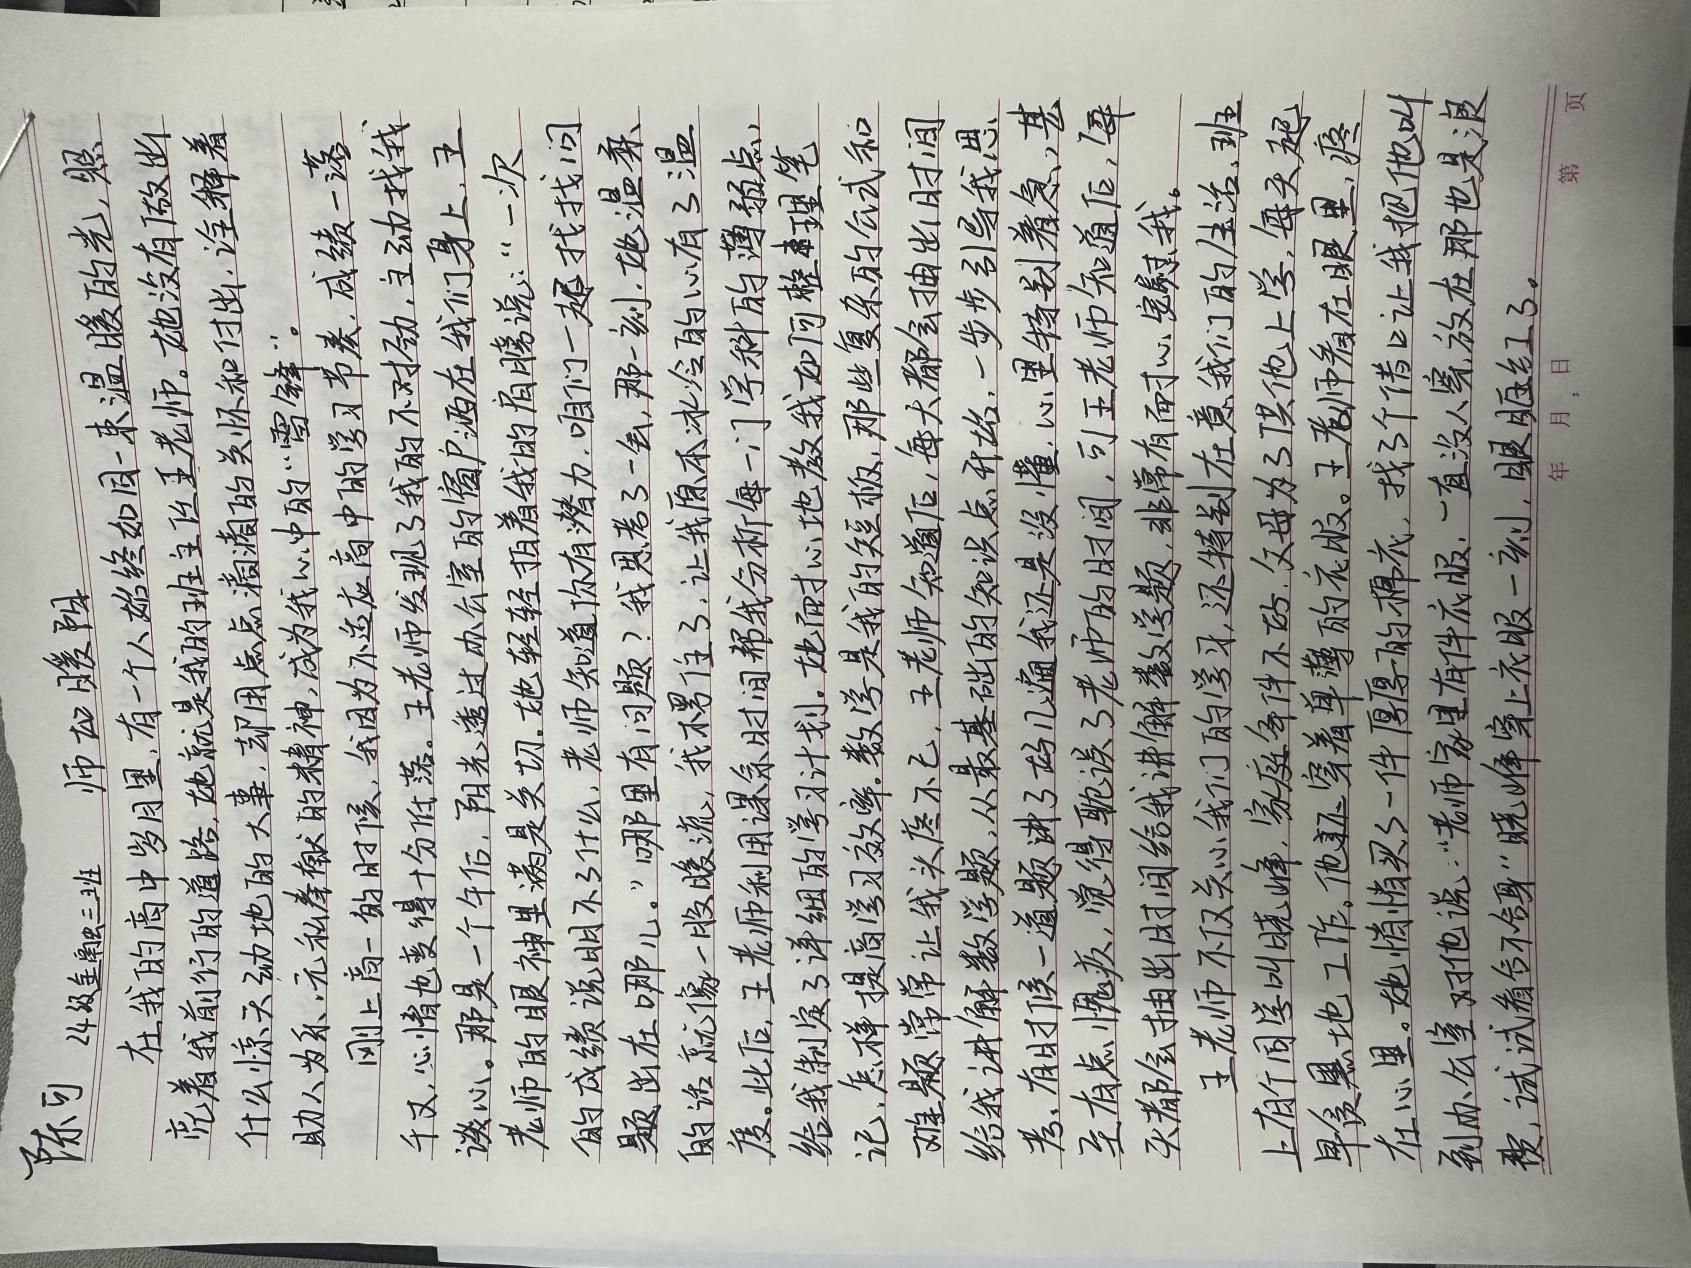 陈可
24级金融三班 师心暖阳
在我的高中岁月里，有一个人始终如同一束温暖的光，照
亮着我前行的道路，她就是我的班主任王老师。她没有做出
什么惊天动地的大事，却用点点滴滴的关怀和付出，诠释着
助人为乐、无私奉献的精神，成为我心中的“雷锋”。
刚上高一的时候，我因为不适应高中的学习节奏，成绩一落
千丈，心情也变得十分低落。王老师发现了我的不对劲，主动找我
谈心。那是一个午后，阳光透过办公室的窗户洒在我们身上，王
老师的眼神里满是关切。她轻轻拍着我的肩膀说：“一次
的成绩说明不了什么，老师知道你有潜力，咱们一起找找问
题出在哪儿。”哪里有问题？我思考了一会，那一刻，她温柔
的话就像一股暖流，我不累了，让我原本冰冷的心有了温
度。此后，王老师利用课余时间帮我分析每一门学科的薄弱点，
给我制定了详细的学习计划。她耐心地教我如何整理笔
记，怎样提高学习效率。数学是我的短板，那些复杂的公式和
难题常常让我头疼不已，王老师知道后，每天都会抽出时间
给我讲解数学题，从最基础的知识点开始，一步步引导我思
考，有时候一道题讲了好几遍我还是没懂，心里特别着急，甚
至有点愧疚，觉得耽误了老师的时间，可王老师知道后，每
天都会抽出时间给我讲解数学题，非常有耐心，安慰我。
王老师不仅关心我们的学习，还特别在意我们的生活。班
上有个同学叫晓峰，家庭条件不好，父母为了供他上学，每天起
早贪黑地工作。他还穿着单薄的衣服。王老师看在眼里，疼
在心里。她悄悄买了一件厚厚的棉衣，找了个借口让我把他叫
到办公室，对他说：“老师家里有件衣服，一直没人穿，放在那也是浪
费，试试看合不合身”晓峰穿上衣服一刻，眼眶红了。
年 月 日
第 页